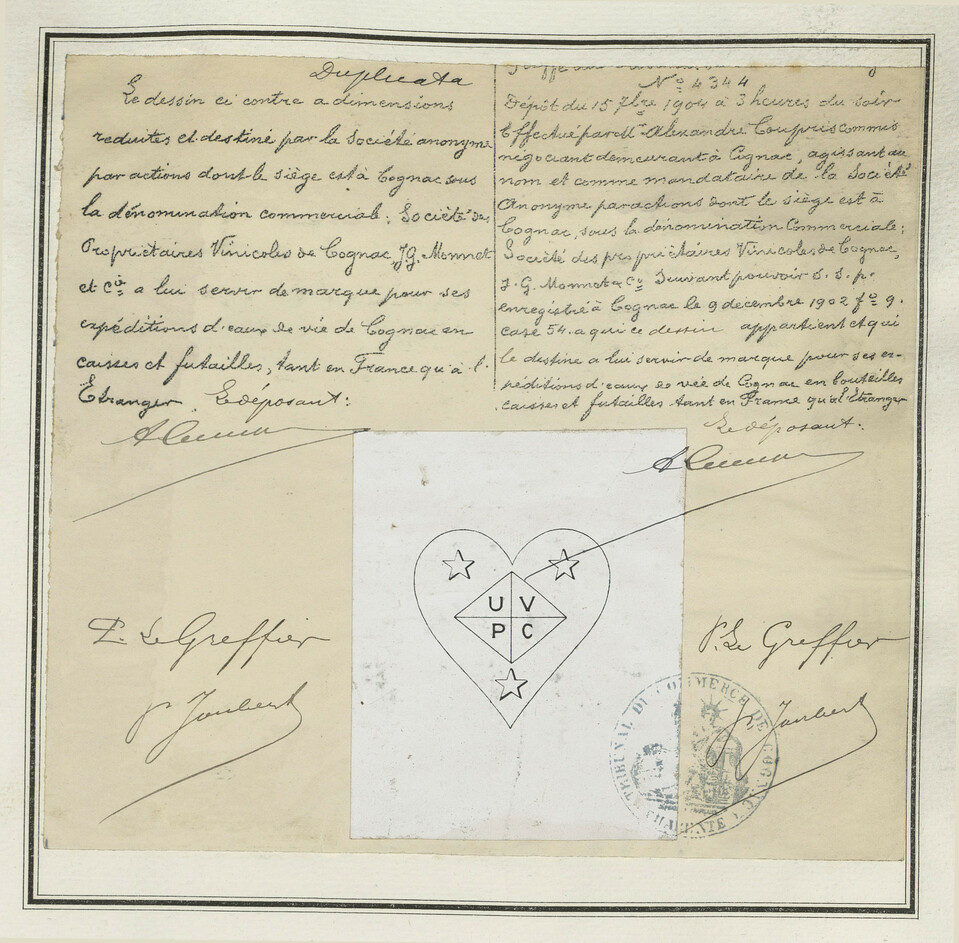 Duplicata
Le dessin ci contre a dimensions
reduites et destiné par la Société anonyme
par actions dont le siège est à Cognac sous
la dénomination commerciale: Société des
Propriétaires Vinicoles de Cognac, J.G. Monnet
et Cie a lui servir de marque pour ses
expéditions d'eaux de vie de Cognac en
caisses et futailles, tant en France qu'à l'
Étranger Le déposant:
No 4344
Dépôt du 15 7bre 1904 à 3 heures du soir
Effectué par Mr Alexandre commis
négociant demeurant à Cognac, agissant au
nom et comme mandataire de la Société
Anonyme par actions dont le siège est à
Cognac, sous la dénomination Commerciale;
Société des propriétaires Vinicoles de Cognac,
J. G. Monnet & Co Suivant pouvoir S. S. p.
enregistré à Cognac le 9 décembre 1902 fo 9.
case 54. a qui ce dessin appartient et qui
le destine a lui servir de marque pour ses ex-
péditions d'eaux de vie de Cognac en bouteilles
caisses et futailles tant en France qu'à l'Étranger
Le déposant:
U V
P C
P. Le Greffier
P. Le Greffier
Joubert
Joubert
TRIBUNAL DE COMMERCE DE COGNAC
CHARENTE